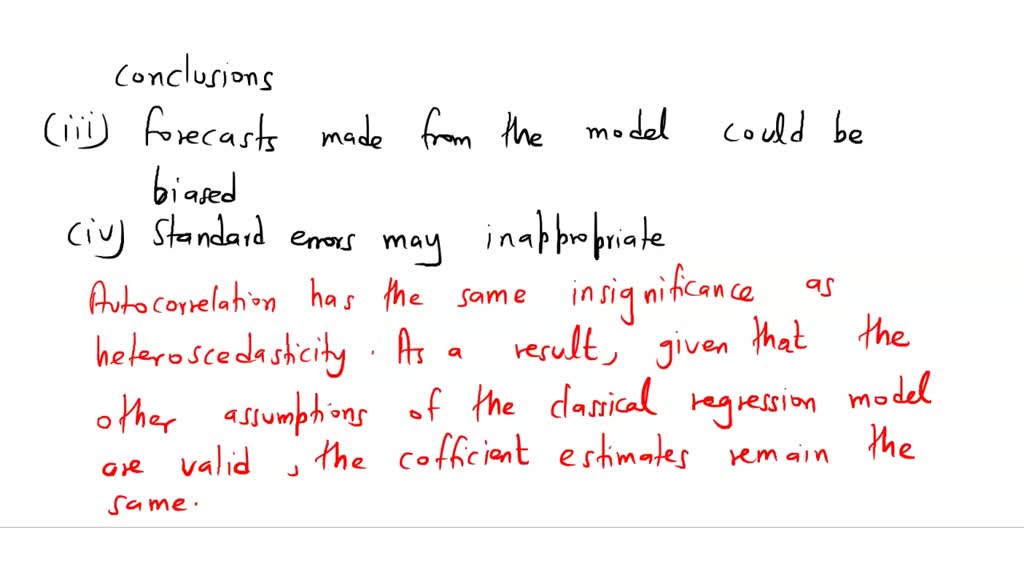 conclusions
(iii) Forecasts made from the model could be
biased
(iv) Standard errors may inappropriate
Autocorrelation has the same insignificance as
heteroscedasticity. As a result, given that the
other assumptions of the classical regression model
are valid, the cofficient estimates remain the
same.